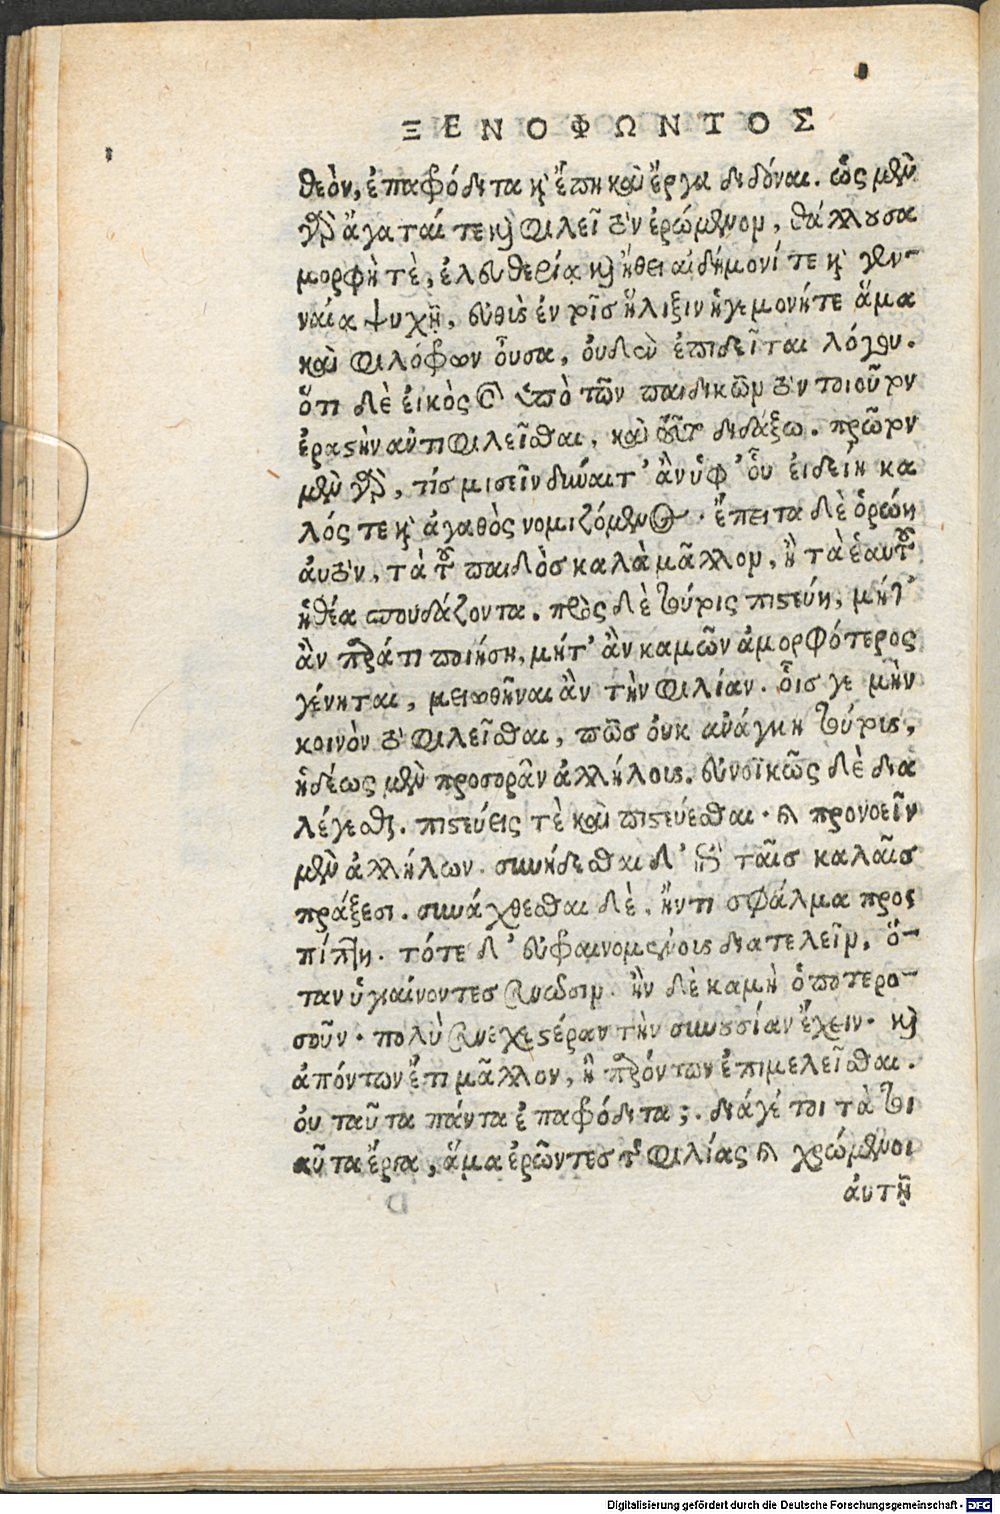 ΞΕΝΟΦΩΝΤΟΣ
θεὸν, ἐπαφρόδιτα κὶ ἔπη καὶ ἔργα διδόναι. ὡς μὲν
γὸ ἄγαταί τε κὶ φιλεῖ τὸν ἐρώμενον, θάλλουσα
μορφῆ τὲ, ἐλευθερίᾳ κὶ ἤθει αἰδήμονί τε κὶ γεν-
ναία ψυχῇ, εὐθὶς ἐν τοῖς ἥλιξιν ἡγεμονήτε ἅμα
καὶ φιλόφρων οὖσα, ὀυδὲν ἐπιδεῖται λόγου.
ὅτι δὲ ἐικὸς καὶ ὑπὸ τῶν παιδικῶν τὸν τοιοῦτον
ἐραστὴν ἀντιφιλεῖσθαι, καὶ τοῦτο διδάξω. πρῶτον
μὲν γὸ, τίς μισεῖν δύναιτ' ἂν ὑφ' οὗ ἐιδείη κα
λός τε κὶ ἀγαθὸς νομιζόμενος. ἔπειτα δὲ ὁρώη
ἀυτὸν, τὰ τοῦ παιδὸς καλὰ μᾶλλον, ἢ τὰ ἑαυτοῦ
ἡθέα σπουδάζοντα. πρὸς δὲ τούτοις πιστεύη, μήτ'
ἂν παρά τι ποιήση, μήτ' ἂν καμῶν ἀμορφότερος
γένηται, μειωθῆναι ἂν τὴν φιλίαν. οἷς γε μὴν
κοινὸν τὸ φιλεῖσθαι, πῶς ὀυκ ἀνάγκη τούτοις,
ἡδέως μὲν προσορᾶν ἀλλήλοις. εὐνοϊκῶς δὲ δια
λέγεσθαι. πιστεύεις τὲ καὶ πιστεύεσθαι. καὶ προνοεῖν
μὲν ἀλλήλων. συνήδεσθαι δ' ἐπὶ ταῖς καλαῖς
πράξεσι. συνάχθεσθαι δὲ, ἤν τι σφάλμα προσ
πίπτη. τότε δ' εὐφραινομένοις διατελεῖν, ὅ-
ταν ὑγιαίνοντες συνῶσιν. ἢν δὲ καμὴ ὁποτερο-
σοῦν. πολὺ συνεχεστέραν τὴν συνουσίαν ἔχειν. κὶ
ἀπόντων ἔτι μᾶλλον, ἢ παρόντων ἐπιμελεῖσθαι.
ὀυ ταῦτα πάντα ἐπαφρόδιτα; διάγέ τοι τὰ τοι
αῦτα ἔργα, ἅμα ἐρῶντες τῆς φιλίας καὶ χρώμενοι
ἀυτῇ
Digitalisierung gefördert durch die Deutsche Forschungsgemeinschaft - DFG